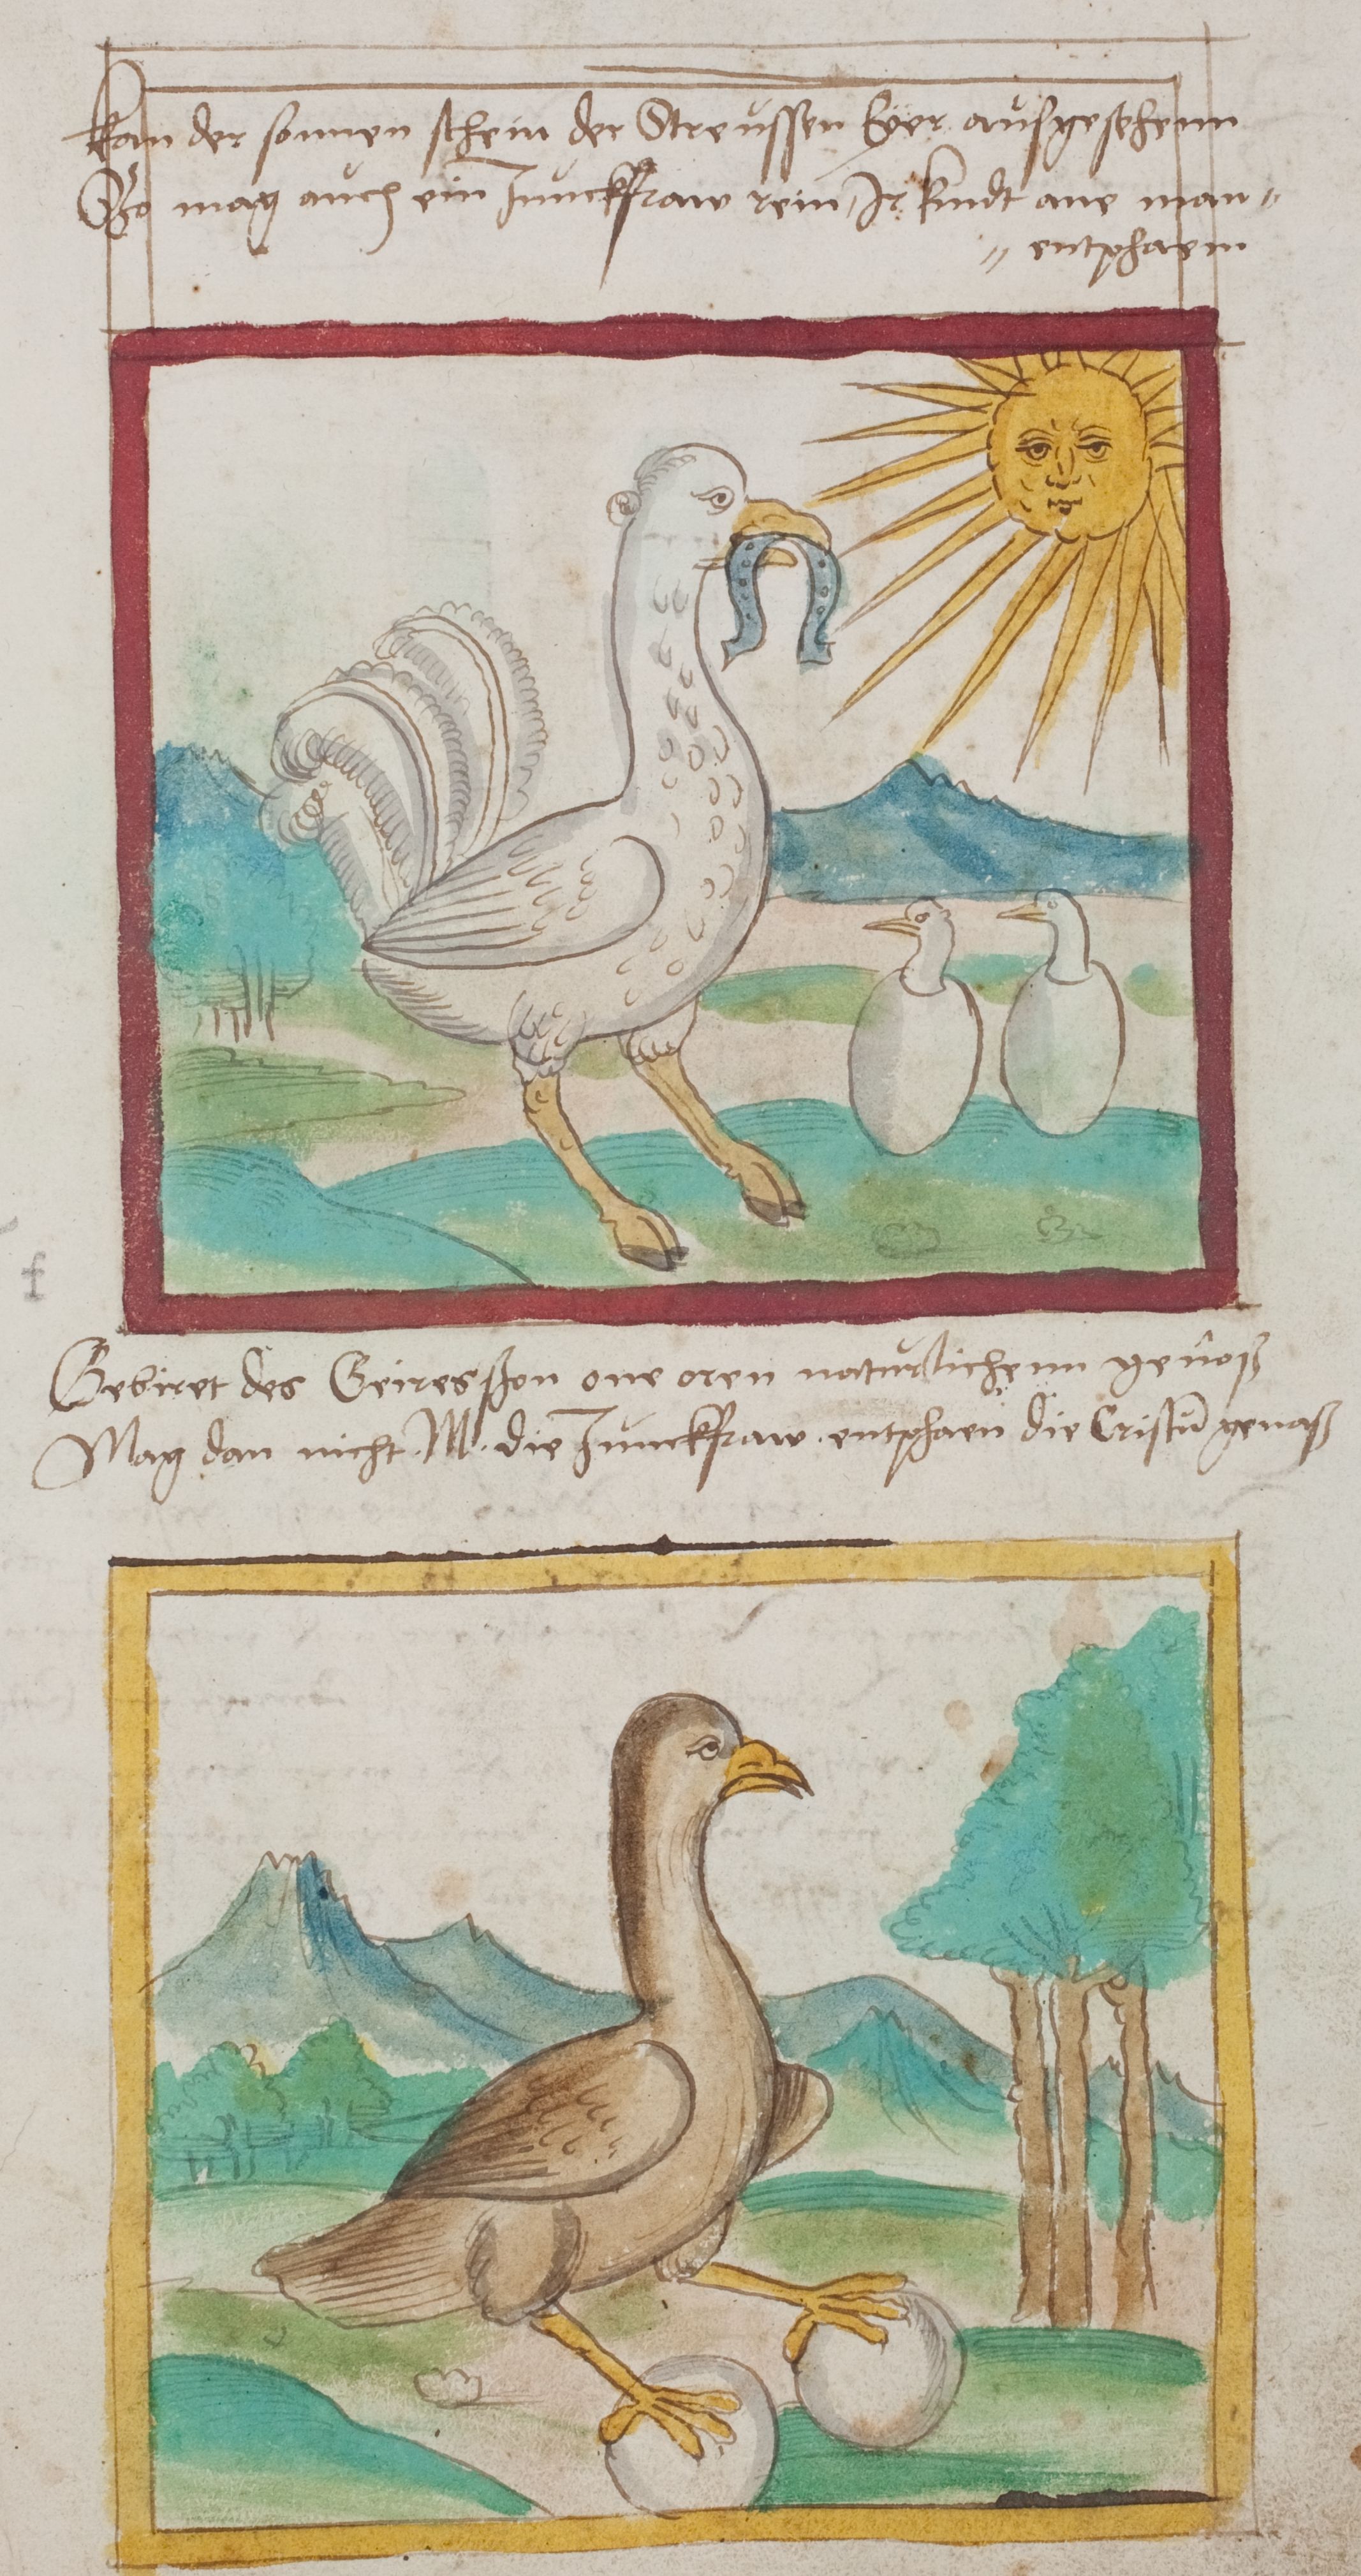 Kan der sonnen schein der Streussen Eyer ausgesehenn
So mag auch ein Junckfraw rein Ir kindt ane man〃
〃 entphaen
f
Gebiret des Geires son one oren naturlichenn genoß
Mag dan nicht M. die Junckfraw entphaen die Cristū genaß